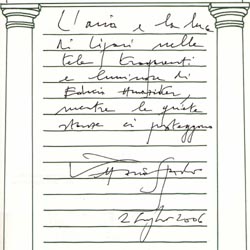 L'aria e la luce
di Lipari nelle
tele trasparenti
e luminose di
mentre le quiete
stanze ci proteggono
2 luglio 2006